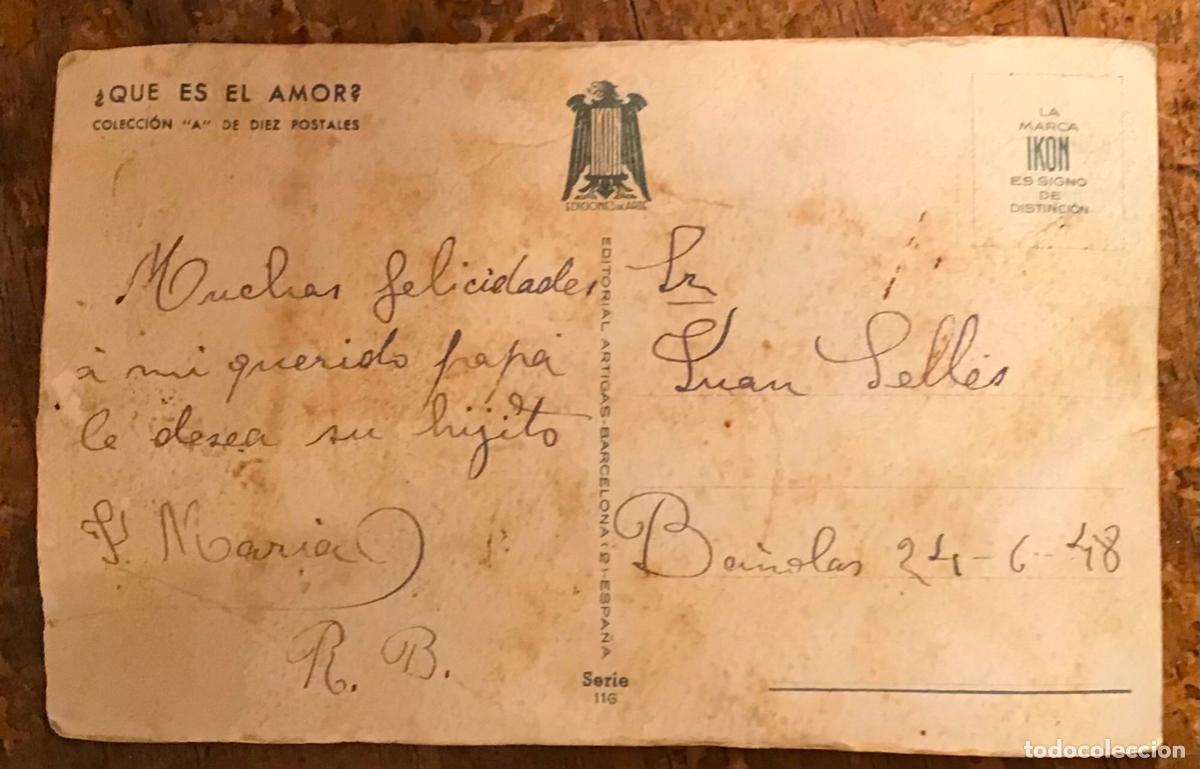 ¿QUE ES EL AMOR?
COLECCIÓN "A" DE DIEZ POSTALES
IKON
EDICIONES DE ARTE
LA
MARCA
IKON
ES SIGNO
DE
DISTINCIÓN
Muchas felicidades
à mi querido papá
le desea su hijito
J. Maria
R. B.
EDITORIAL ARTIGAS-BARCELONA (2)-ESPAÑA
Serie
116
Sr
Juan Sellés
Bañolas 24-6-48
todocoleccion